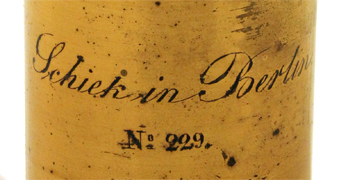 Schiek in Berlin
Nº 229.